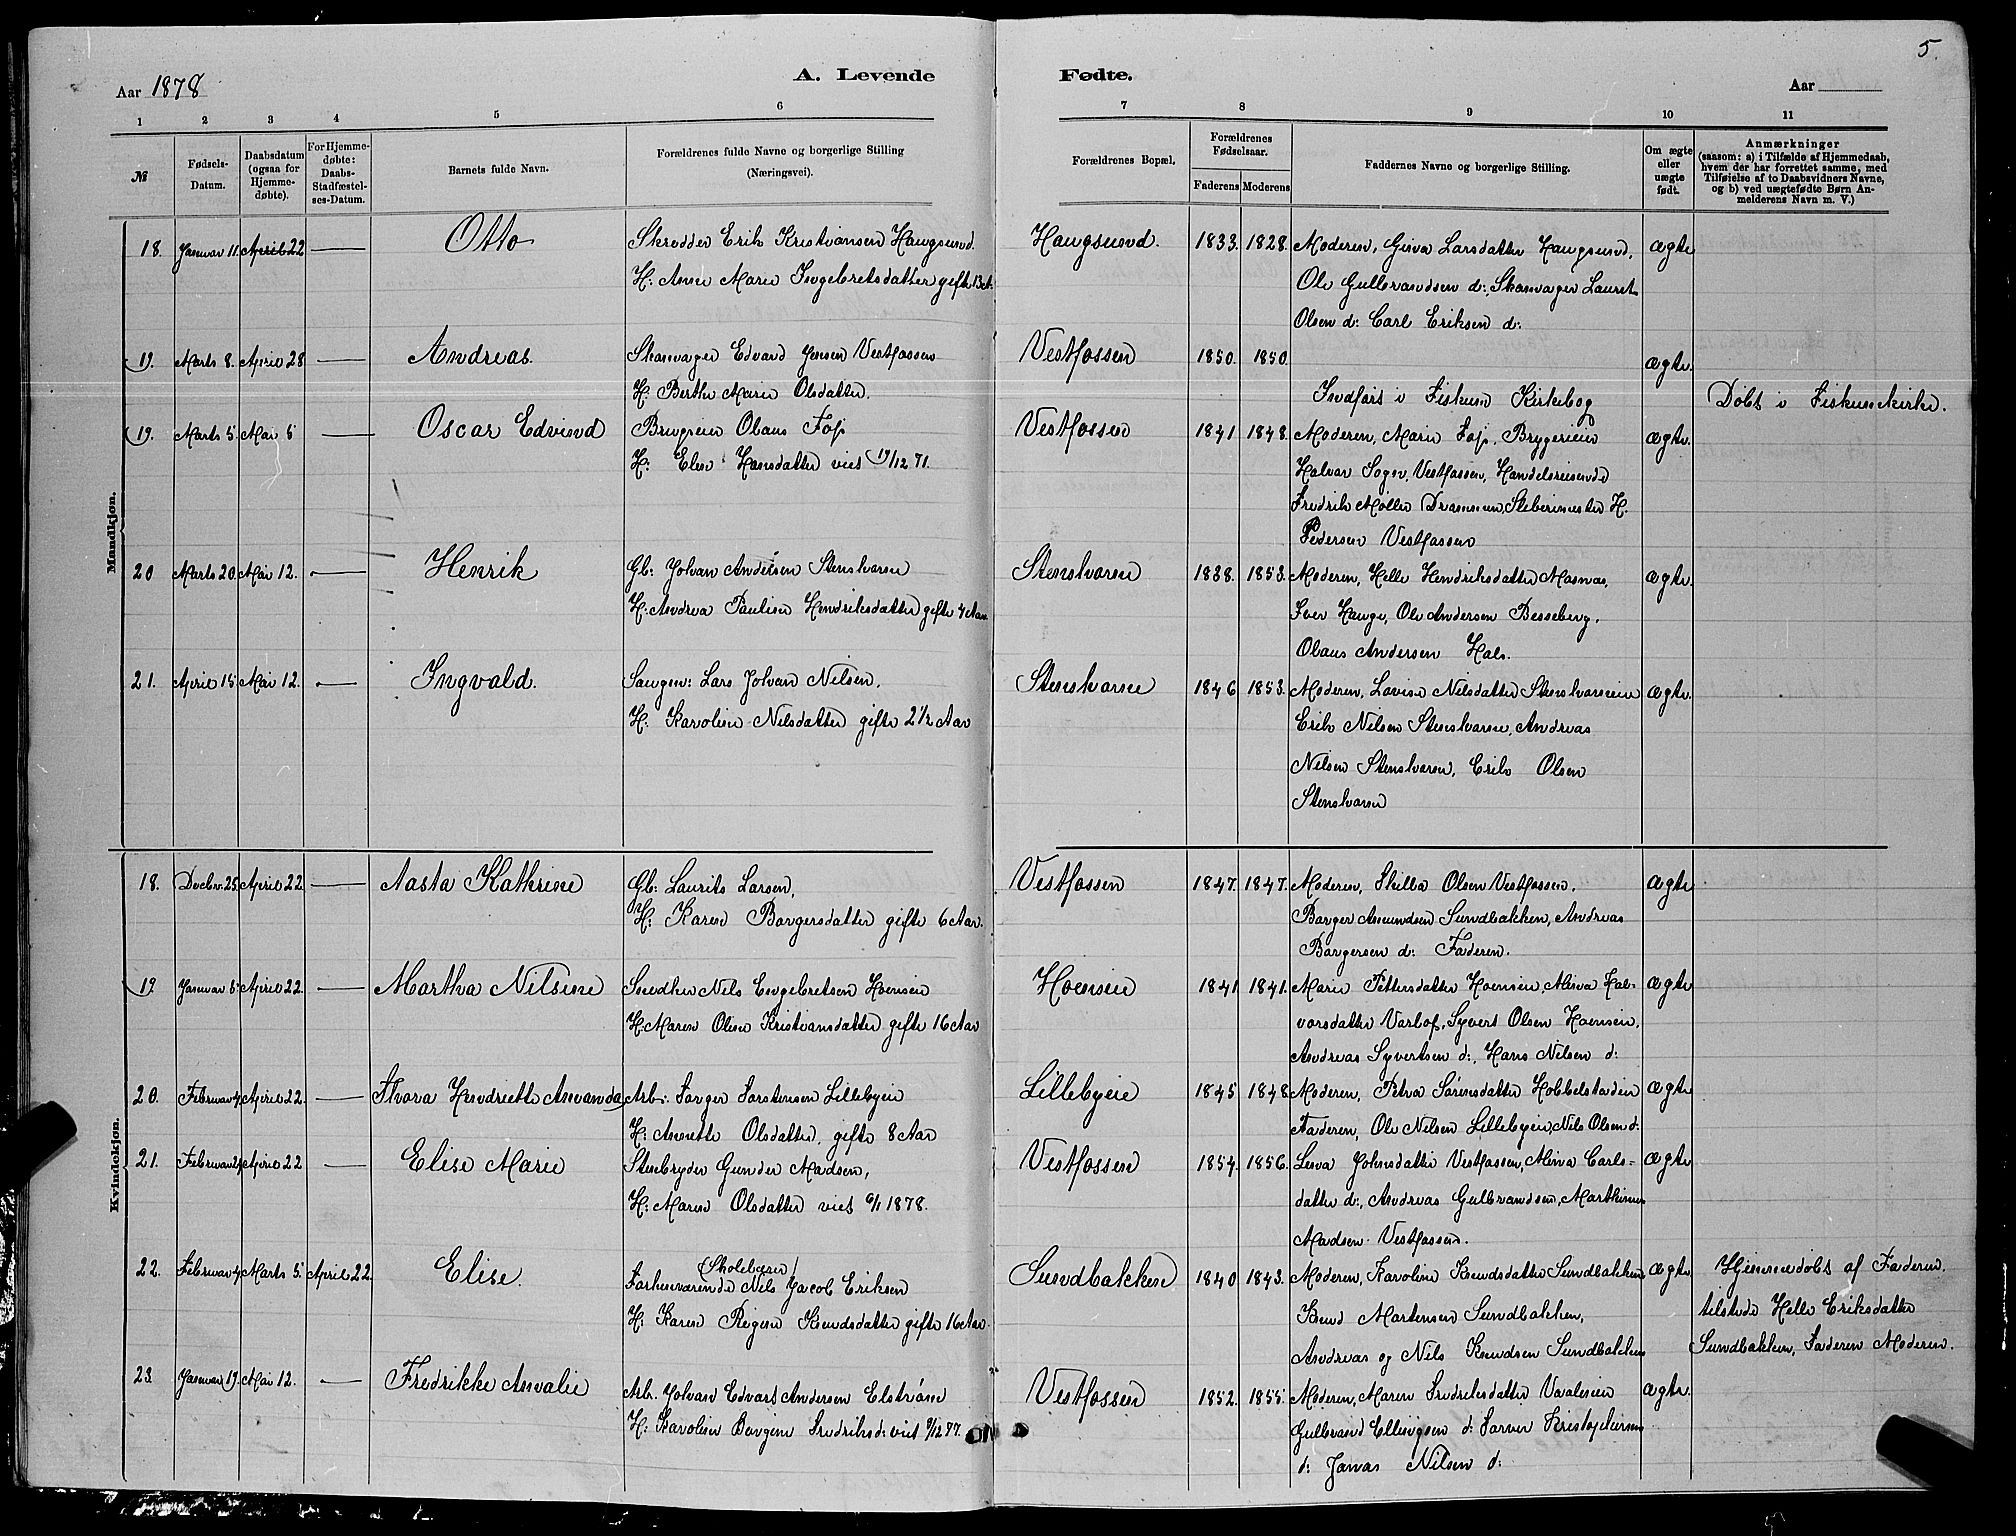 5.
Aar 1878
A. Levende Fødte.
Aar
1 2 3 4 5 6 7 8 9 10 11
№
Fødsels-Datum.
Daabsdatum (ogsaa for Hjemme-døbte).
For Hjemme-døbte: Daabs-Stadfæstel-ses-Datum.
Barnets fulde Navn.
Forældrenes fulde Navne og borgerlige Stilling (Næringsvei).
Forældrenes Bopæl.
Forældrenes Fødselsaar.
Faderens Moderens
Faddernes Navne og borgerlige Stilling.
Om ægte eller uægte født.
Anmærkninger
(saasom: a) i Tilfælde af Hjemmedaab, hvem der har forrettet samme, med Tilføielse af to Daabsvidners Navne, og b) ved uægtefødte Børn An-melderens Navn m. V.)
Mandkjøn.
18. Januar 11. April 22 — Otto Skrædder Erik Kristiansen Haugsund. Haugsund. 1833. 1828. Moderen, Gurva Larsdatter Haugsund, ægte
H: Anne Marie Ingebretsdatter gifte 13 A.
Ole Gulbrandsen d:, Skomager Laurits
Olsen d: Carl Eriksen d:
19. Marts 8. April 28 — Andreas. Skomager Edvard Jensen Vestfossen Vestfossen 1850. 1850. ægte.
H. Berthe Marie Olsdatter.
Indført i Fiskum Kirkebog Døbt i Fiskum Kirke.
19. Marts 5. Mai 5 — Oscar Edvind Brugseier Olaus Fos Vestfossen 1841 1848. Moderen, Marie Fos, Bryggerieier ægte.
H: Elen Hansdatter viet 19/12 71.
Halvor Sogn, Vestfossen, Handelsreisende
Fredrik Møller Drammen, Støberimester H.
Pedersen Vestfossen
20 Marts 20. Mai 12. — Henrik Gb: Johan Andersen Stenshorne Stenshorne 1838. 1853. Moderen, Helle Hendriksdatter Mosnas, ægte.
H: Andrea Pauline Hendriksdatter gifte 4 Aar
Iver Hauge, Ole Andersen Besseberg,
Olaus Andersen Hals.
21. April 15 Mai 12. — Ingvald. Saugm: Lars Johan Nilsen. Stenshorne 1846 1853. Moderen, Lovise Nilsdatter Stenshorneie ægte.
H. Karoline Nilsdatter gifte 2 1/2 Aar
Erik Nilsen Stenshorne, Andreas
Nilsen Stenshorne, Erik Olsen
Stenshorne
Kvindekjøn.
18. Decbr. 25. April 22 — Aasta Kathrine Gb: Laurits Larsen, Vestfossen 1847. 1847. Moderen, Skilla Olsen Vestfossen. ægte
H: Karen Borgersdatter gifte 6 Aar.
Borger Amundsen Sundbakken, Andreas
Borgersen d: Faderen.
19. Januar 5. April 22. — Martha Nilsine Snedker Nils Engebretsen Hoensen Hoensen 1841 1841. Marie Pettersdatter Hoensen, Mina Hal- ægte
H: Maren Olsen Kristiansdatter gifte 16 Aar
vorsdatter Varlof, Syvert Olsen Hoensen,
Andreas Syvertsen d:, Hans Nilsen d:
20. Februar 4. April 22. — Thora Hendriette Amanda, Arb: Torger Torstensen Lillebyeie Lillebyeie 1845 1848. Moderen, Petra Sørensdatter Hobbelstadeie ægte
H: Annette Olsdatter, gifte 8 Aar
Faderen, Ole Nilsen Lillebyeie, Nils Olsen d:
21. Februar 24. April 22 — Elise Marie Stenbryder Gunder Madsen, Vestfossen 1854. 1856. Lena Johnsdatter Vestfossen, Mina Carls- ægte
H: Maren Olsdatter viet 6/1 1878.
datter d:, Andreas Gulbrandsen, Marthinus
Madsen Vestfossen.
22. Februar 4. Marts 5. April 22. Elise. (Skolelærer) Sundbakken 1840 1843. Moderen, Karoline Knudsdatter Sundbakken ægte Hjemmedøbt af Faderen.
Forhenværende Nils Jacob Eriksen
H: Karen Regine Knudsdatter gifte 16 Aar.
Knud Mortensen Sundbakken, tilstede Helle Eriksdatter
Andreas og Nils Knudsen Sundbakken Sundbakken, Faderen Moderen.
23. Januar 19. Mai 12. — Fredrikke Amalie Arb. Johan Edvart Andersen Elstrøm Vestfossen 1852. 1855. Moderen, Maren Fredriksdatter Vaaleneie ægte.
H: Karoline Borgine Fredriksd: viet 9/12 77.
Gulbrand Ellingsen d: Torver Kristophersen
d: Jonas Nilsen d: